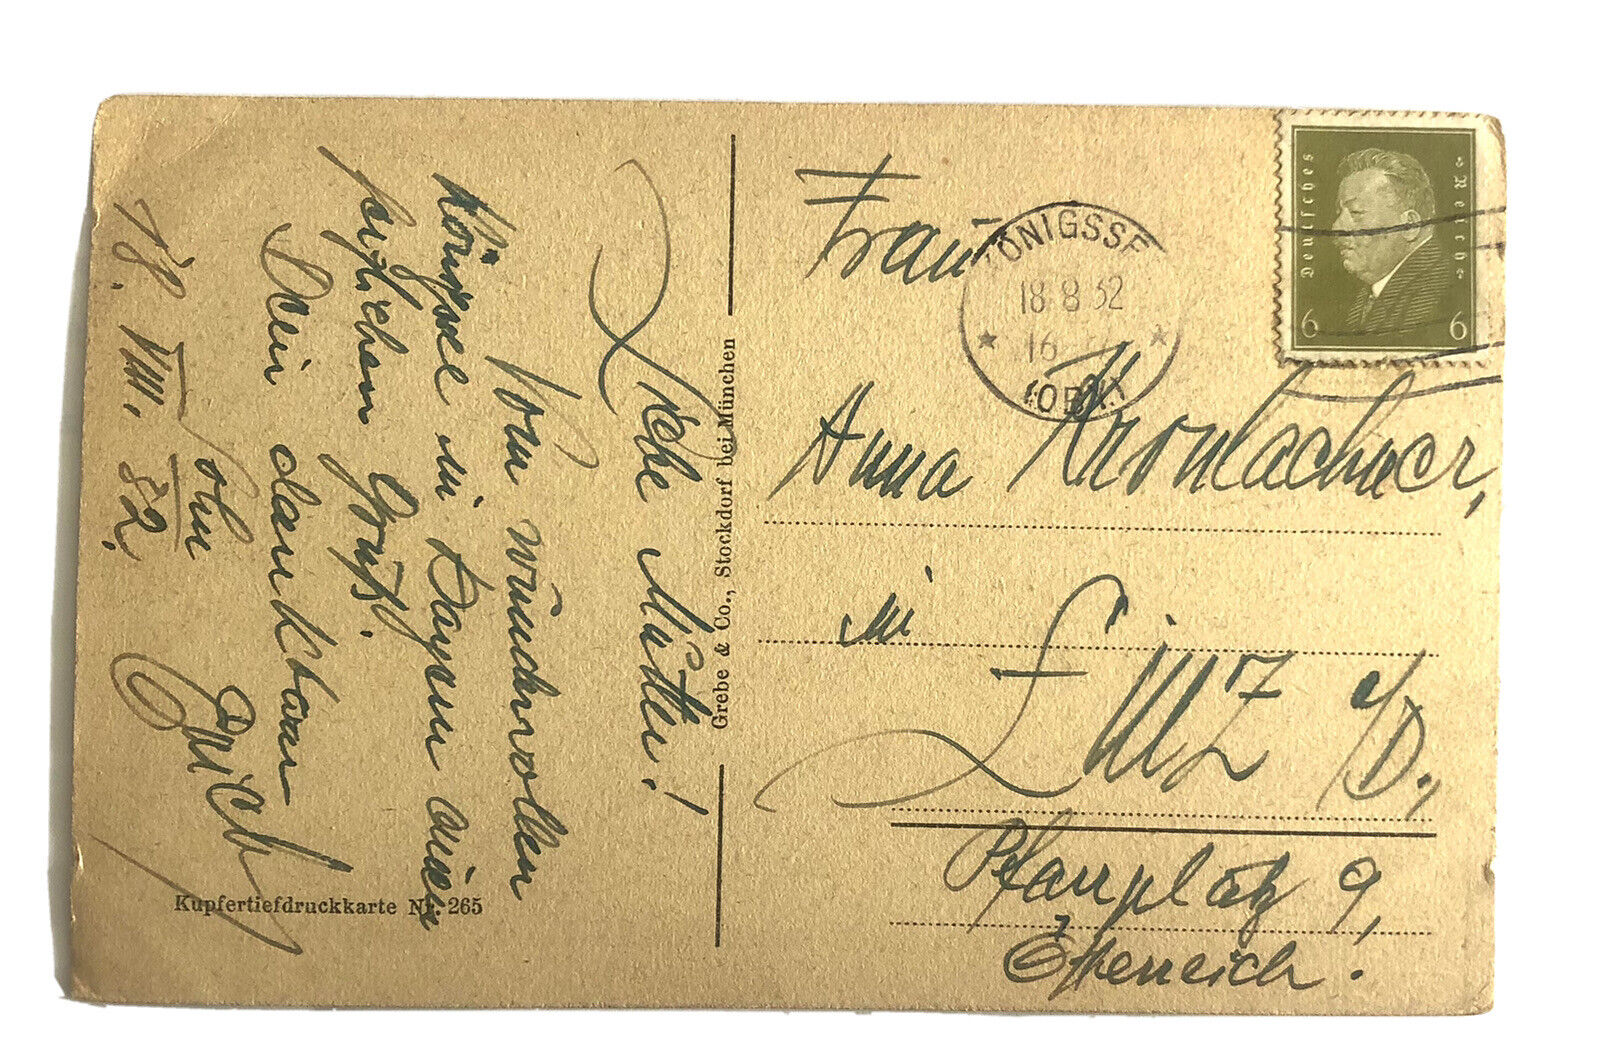 Liebe Mutter!
Vom wundervollen
Königssee in Bayern einen
herzlichen Gruß.
Dein dankbarer
Sohn
18. VIII. 32.
Grebe & Co., Stockdorf bei München
Kupfertiefdruckkarte Nr. 265
Frau
Anna Kronlachner,
in
Linz a/D.,
Pfarrplatz 9,
Österreich.
KÖNIGSSE
18 8 32
16
(OBB.)
Deutsches Reich
6 6